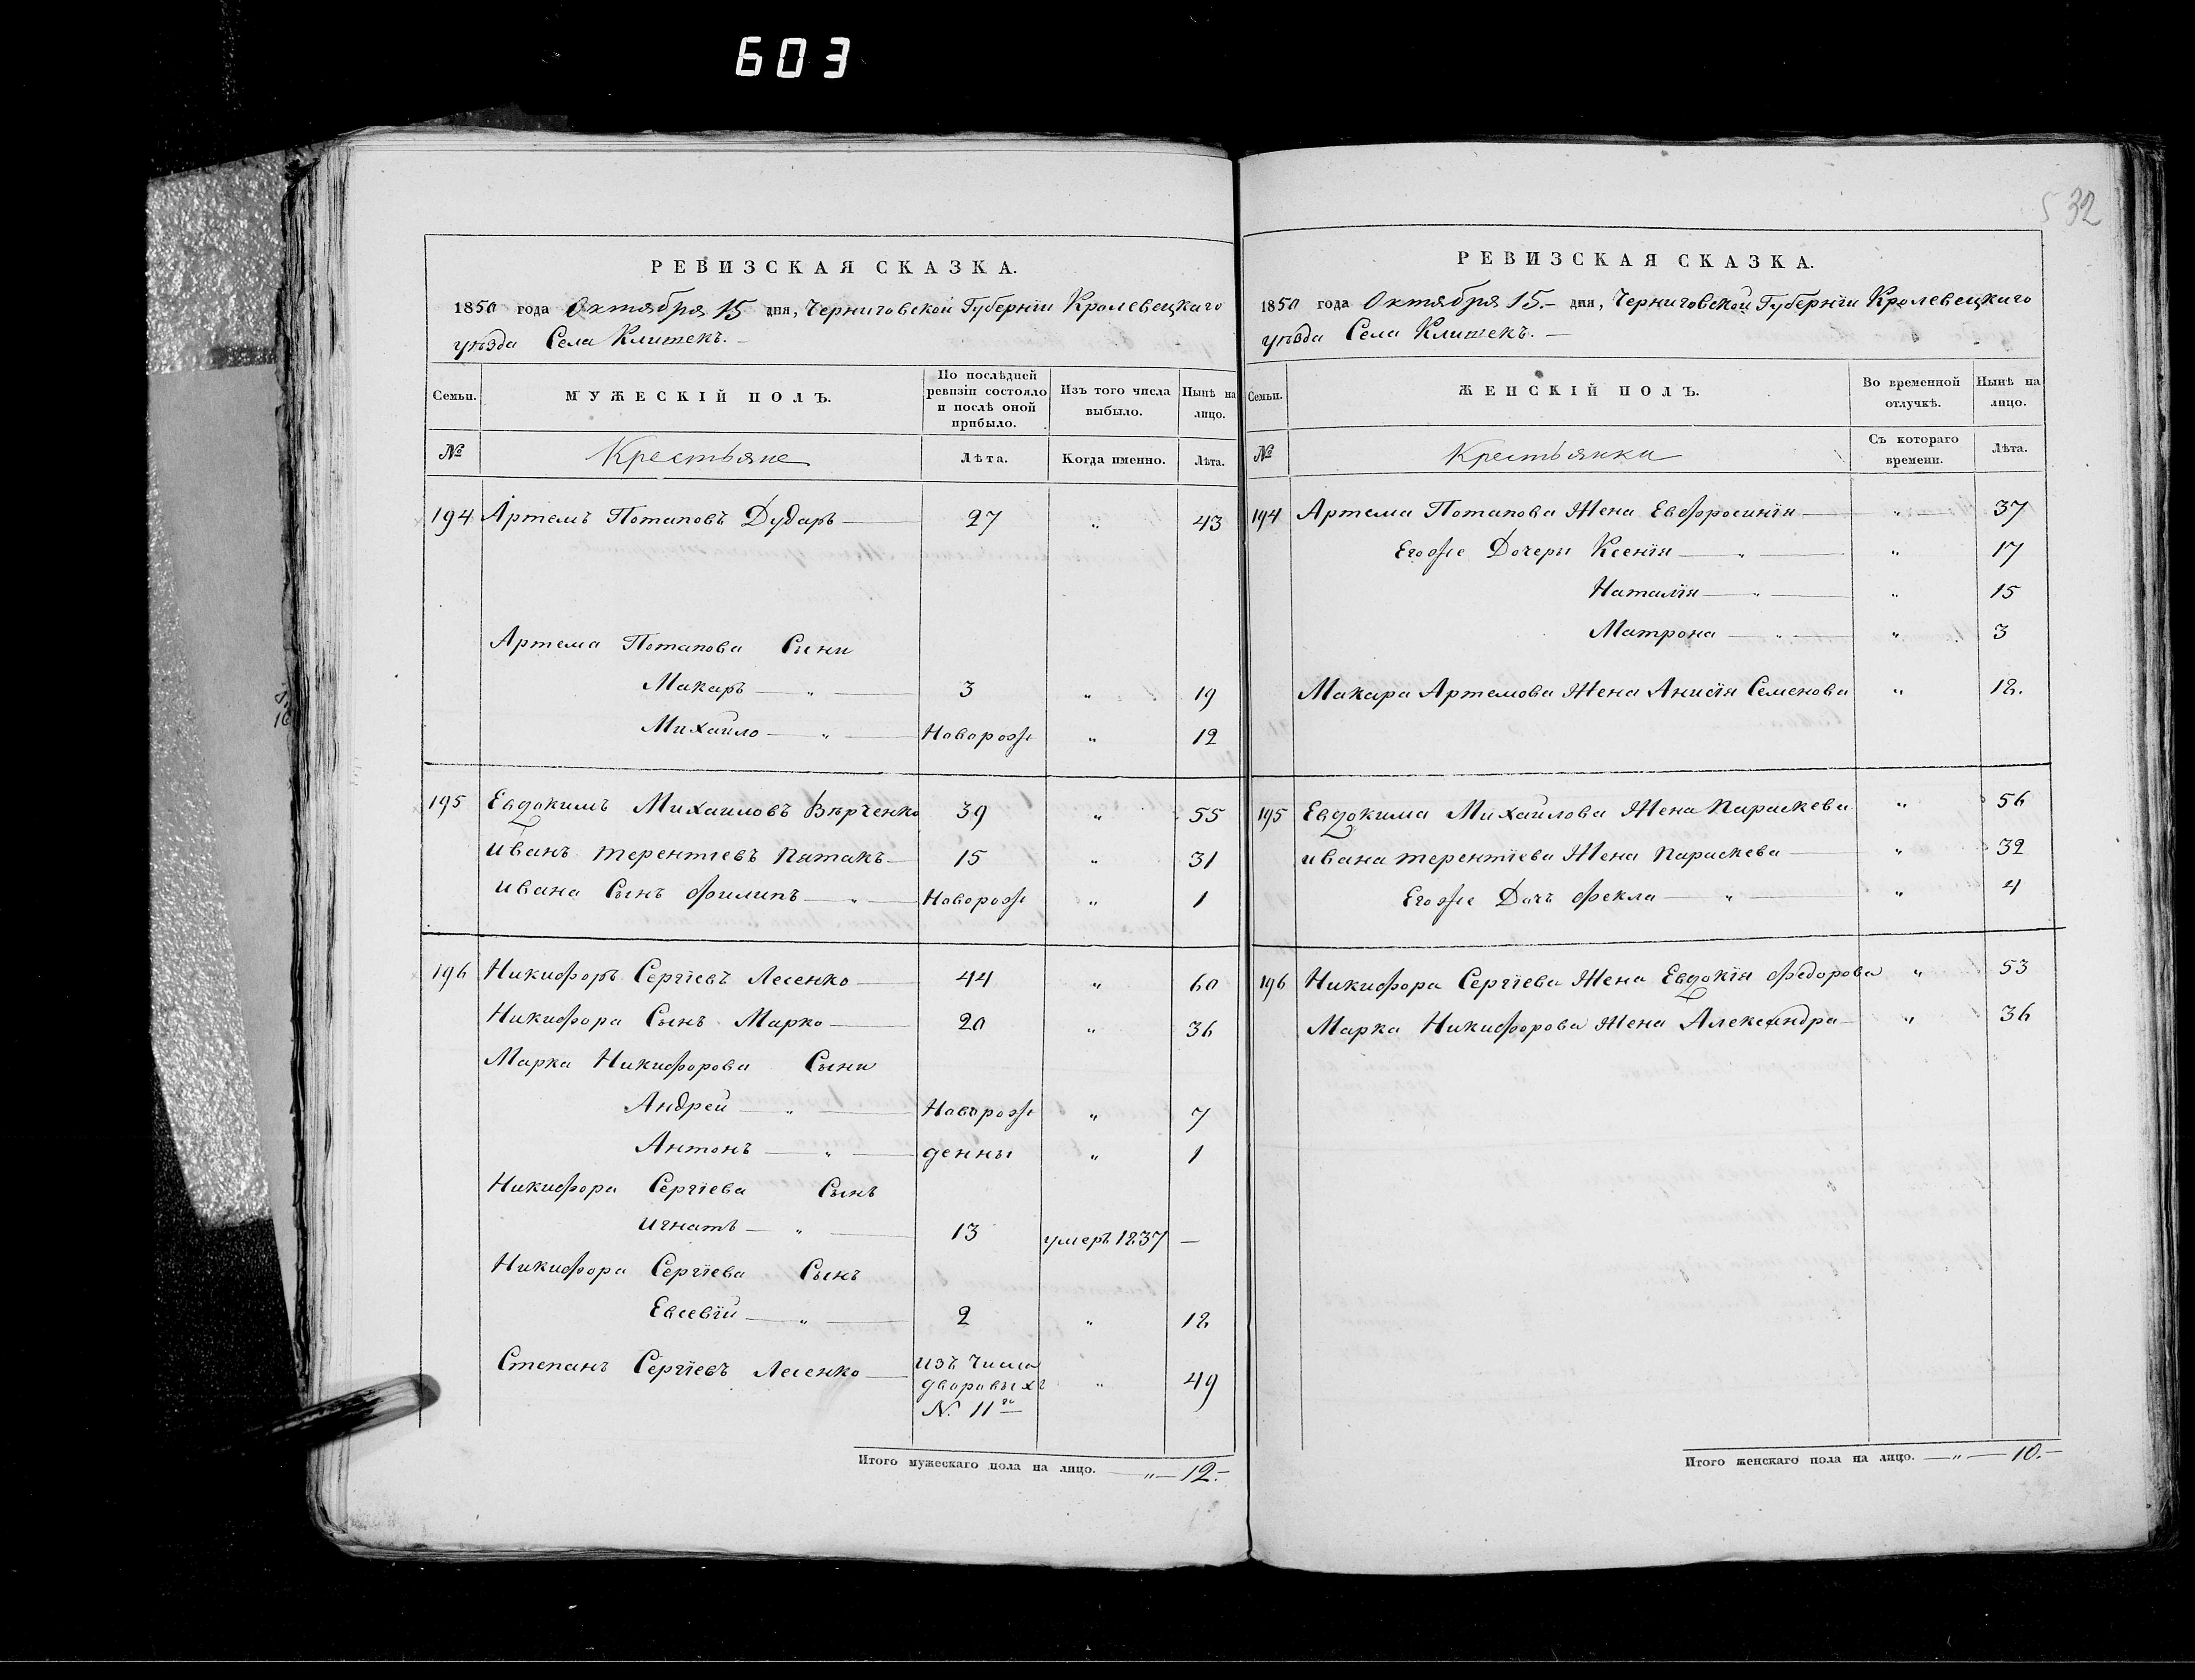 603
532
РЕВИЗСКАЯ СКАЗКА.
1850 года Октября 15 дня, Черниговской Губерніи Кролевецкаго
уѣзда Села Клишекъ. —
Семьи. МУЖЕСКІЙ ПОЛЪ. По послѣдней ревизіи состояло и послѣ оной прибыло. Изъ того числа выбыло. Нынѣ на лицо.
№ Крестьяне Лѣта. Когда именно. Лѣта.
194 Артемъ Потаповъ Дударь — 27 „ 43
Артема Потапова Сыни
Макаръ — „ — 3 „ 19
Михайло — „ — Новорож „ 12
195 Евдокимъ Михаиловъ Вѣрченко 39 „ 55
Иванъ Терентіевъ Пятакъ — 15 „ 31
Ивана Сынъ Филипъ — „ — Новорож „ 1
196 Никифоръ Сергіевъ Лесенко — 44 „ 60
Никифора Сынъ Марко — 20 „ 36
Марка Никифорова Сыни
Андрей — „ — Новорож „ 7
Антонъ — „ — денны „ 1
Никифора Сергіева Сынъ
Игнатъ — „ — 13 умеръ 1837 —
Никифора Сергіева Сынъ
Евсевій — „ — 2 „ 18
Степанъ Сергіевъ Лесенко — изъ числа „ 49
дворовыхъ
№ 11го
Итого мужескаго пола на лицо. — „ — 12. —
РЕВИЗСКАЯ СКАЗКА.
1850 года Октября 15. — дня, Черниговской Губерніи Кролевецкаго
уѣзда Села Клишекъ. —
Семьи. ЖЕНСКІЙ ПОЛЪ. Во временной отлучкѣ. Нынѣ на лицо.
№ Крестьянки Съ котораго времени. Лѣта.
194 Артема Потапова Жена Евфросинія — „ 37
Егоже Дочери Ксенія — „ — „ 17
Наталія — „ — „ 15
Матрона — „ — „ 3
Макара Артемова Жена Анисія Семенова „ 18.
195 Евдокима Михаилова Жена Параскева „ 56
Ивана Терентіева Жена Параскева — „ 32
Егоже Дочь Фекла — „ — „ 4
196 Никифора Сергіева Жена Евдокія Федорова „ 53
Марка Никифорова Жена Александра — „ 36
Итого женскаго пола на лицо. — „ — 10. —